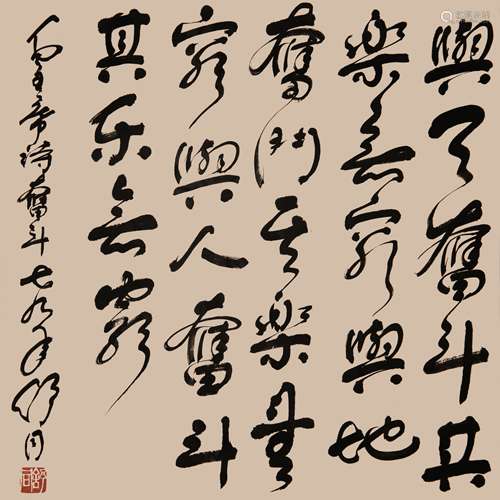 與天奮斗其
樂無窮與地
奮鬥其樂無
窮與人奮斗
其乐無窮
毛主席詩奮斗七九年舒同
舒同